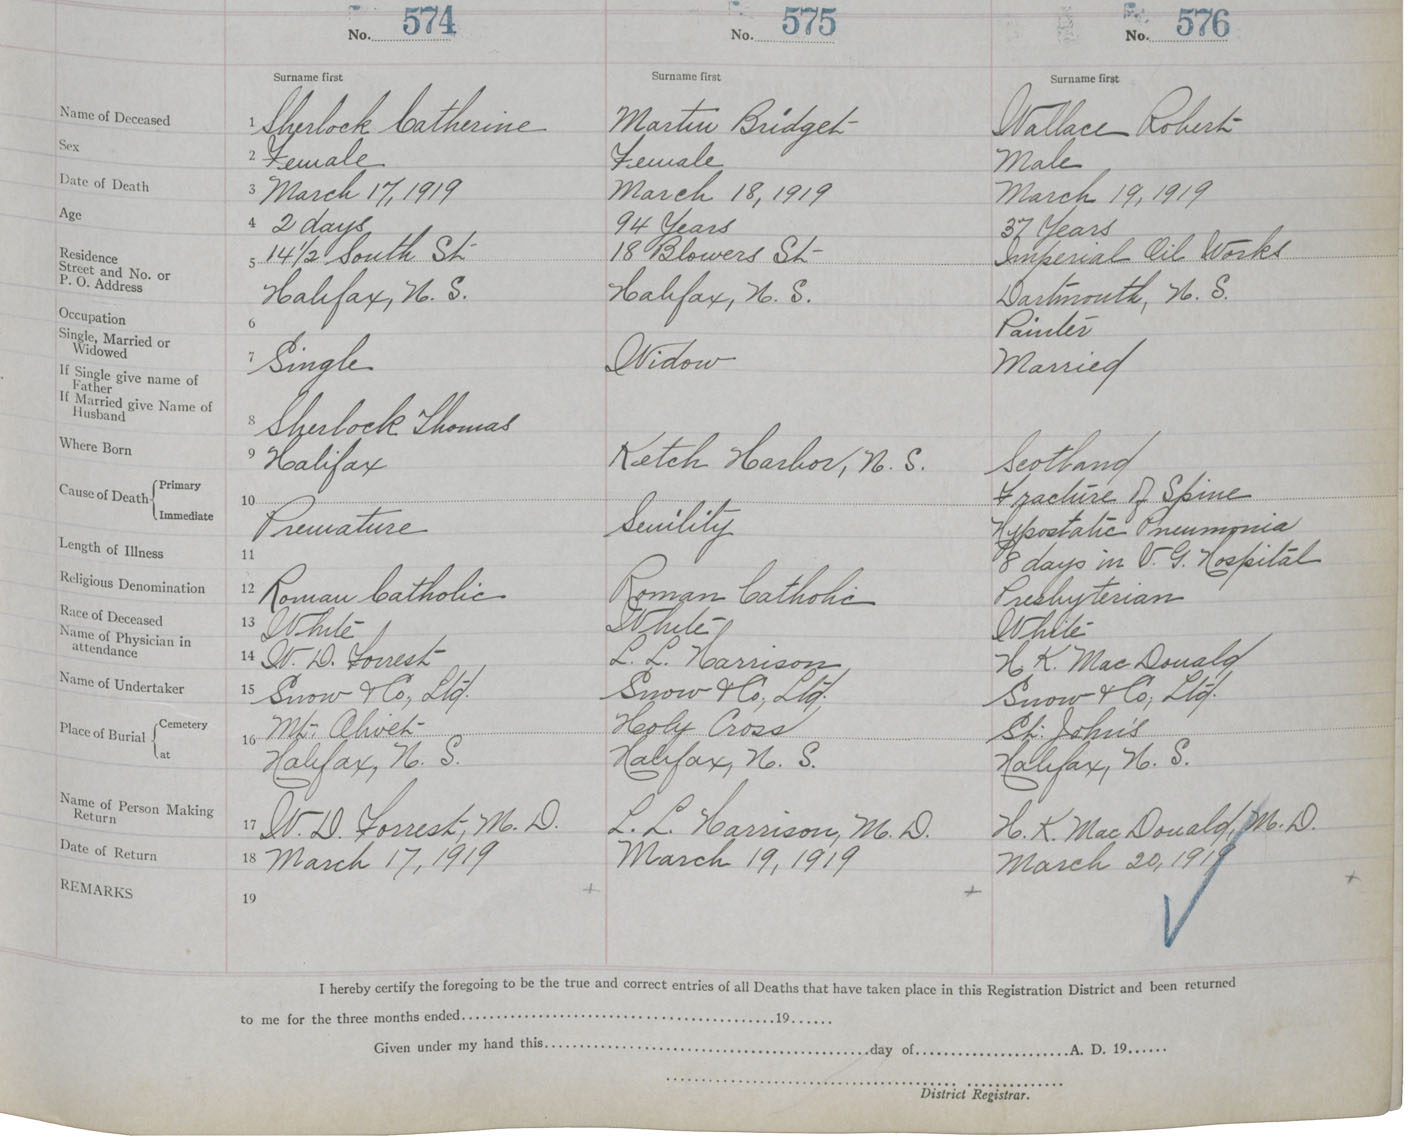 No. 574 No. 575 No. 576
Surname first Surname first Surname first
Name of Deceased 1 Sherlock Catherine Martin Bridget Wallace Robert
Sex 2 Female Female Male
Date of Death 3 March 17, 1919 March 18, 1919 March 19, 1919
Age 4 2 days 94 Years 37 Years
Residence
Street and No. or 5 14 1/2 South St 18 Blowers St Imperial Oil Works
P. O. Address Halifax, N. S. Halifax, N. S. Dartmouth, N. S.
Occupation 6 Painter
Single, Married or
Widowed 7 Single Widow Married
If Single give name of
Father
If Married give Name of
Husband 8 Sherlock Thomas
Where Born 9 Halifax Ketch Harbor, N. S. Scotland
Cause of Death Primary 10 Fracture of Spine
Immediate Premature Senility Hypostatic Pneumonia
Length of Illness 11 8 days in V. G. Hospital
Religious Denomination 12 Roman Catholic Roman Catholic Presbyterian
Race of Deceased 13 White White White
Name of Physician in
attendance 14 W. D. Forrest L. L. Harrison H. K. MacDonald
Name of Undertaker 15 Snow & Co, Ltd. Snow & Co, Ltd. Snow & Co, Ltd.
Place of Burial Cemetery 16 Mt. Olivet Holy Cross St. John's
at Halifax, N. S. Halifax, N. S. Halifax, N. S.
Name of Person Making
Return 17 W. D. Forrest, M. D. L. L. Harrison, M. D. H. K. MacDonald, M. D.
Date of Return 18 March 17, 1919 March 19, 1919 March 20, 1919
REMARKS 19
I hereby certify the foregoing to be the true and correct entries of all Deaths that have taken place in this Registration District and been returned
to me for the three months ended 19
Given under my hand this day of A. D. 19
District Registrar.